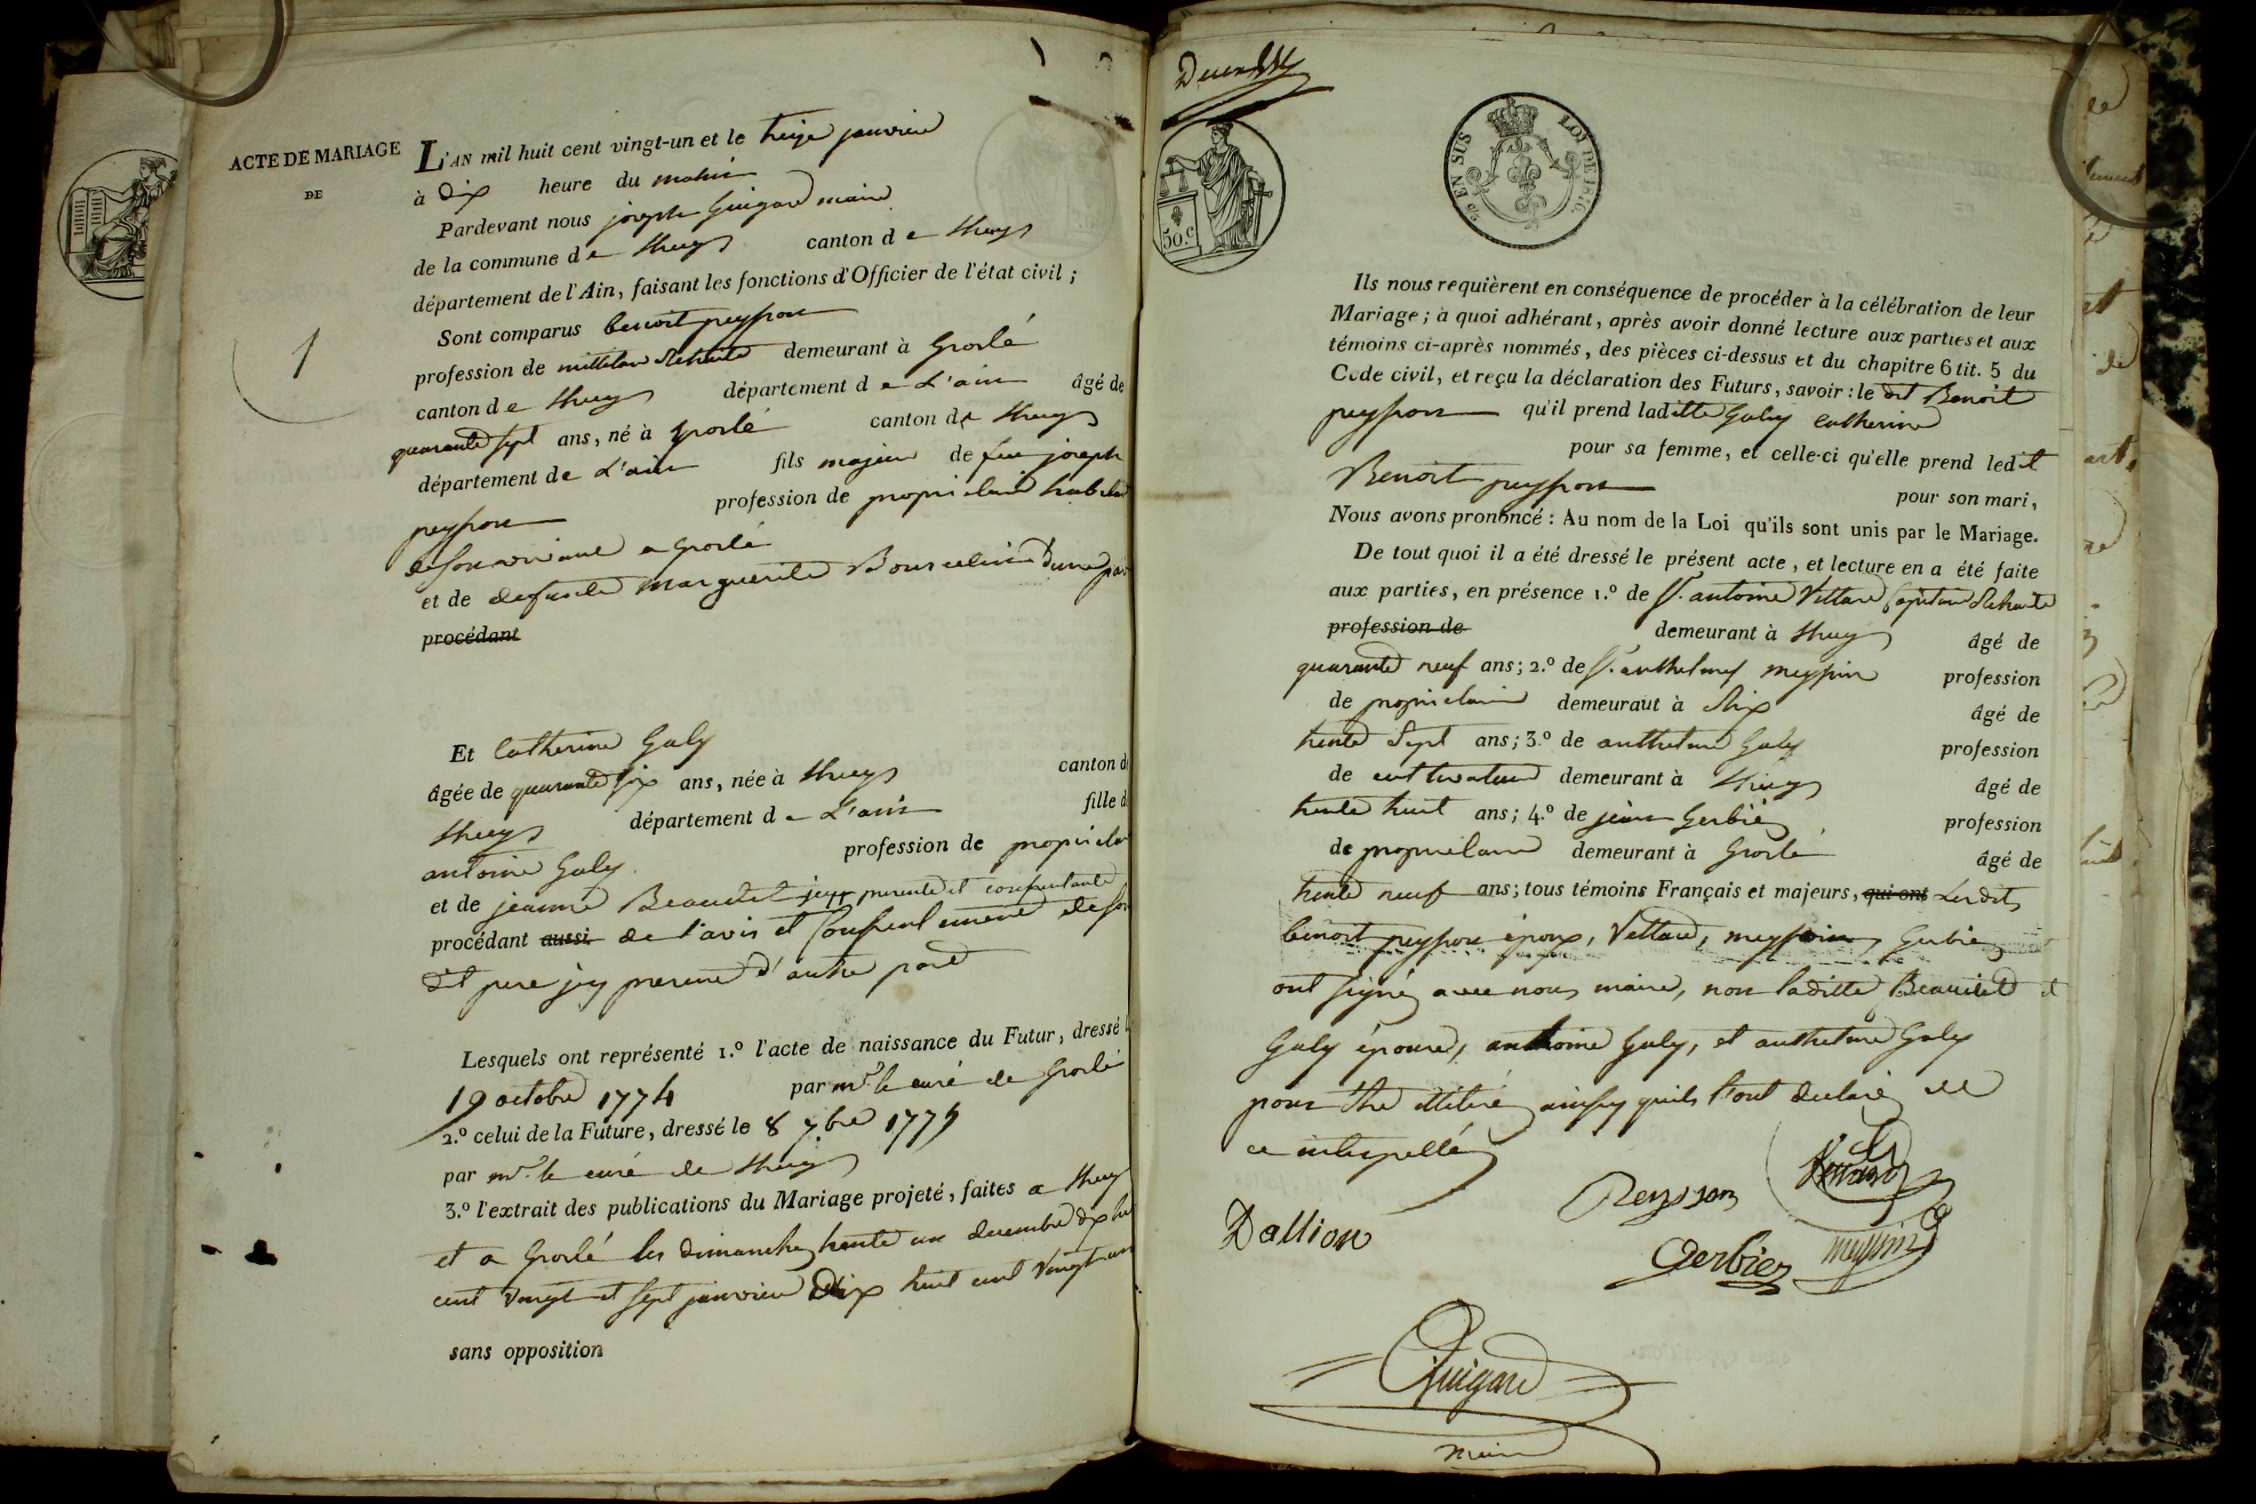 ACTE DE MARIAGE
DE
1
L'AN mil huit cent vingt-un et le treize janvier
à dix heure du matin
Pardevant nous joseph Guigard maire
de la commune de Lhuys canton de Lhuys
département de l'Ain, faisant les fonctions d'Officier de l'état civil;
Sont comparus benoit peysson
profession de militaire Retraité demeurant à Groslé
canton de Lhuys département de L'ain âgé de
quarante sept ans, né à Groslé canton de Lhuys
département de L'ain fils majeur de feu joseph
peysson profession de propriétaire
de son vivant a Groslé
et de defunte Marguerite d'une part
procédant
Et Catherine Galy
âgée de quarante six ans, née à Lhuys canton d
Lhuys département de L'ain fille d
antoine Galy profession de proprietai
et de jeanne Beaudet icy presente et consentante
procédant aussi de l'avis et Consentement de son
dit pere icy present d'autre part
Lesquels ont représenté 1.º l'acte de naissance du Futur, dressé l
19 octobre 1774 par mr. le curé de Groslé
2.º celui de la Future, dressé le 8 7bre 1775
par mr. le curé de Lhuys
3.º l'extrait des publications du Mariage projeté, faites a Lhuys
et a Groslé les dimanches trente un decembre dix huit
cent vingt et sept janvier Dix huit cent vingt un
sans opposition
50.c
EN SUS LOI DE 1816.
Ils nous requièrent en conséquence de procéder à la célébration de leur
Mariage; à quoi adhérant, après avoir donné lecture aux parties et aux
témoins ci-après nommés, des pièces ci-dessus et du chapitre 6 tit. 5 du
Code civil, et reçu la déclaration des Futurs, savoir: le dit Benoit
peysson qu'il prend laditte Galy Catherine
pour sa femme, et celle-ci qu'elle prend ledit
Benoit peysson pour son mari,
Nous avons prononcé: Au nom de la Loi qu'ils sont unis par le Mariage.
De tout quoi il a été dressé le présent acte, et lecture en a été faite
aux parties, en présence 1.º de Sr. antoine Vettard Capitaine Retraité
profession de demeurant à Lhuys âgé de
quarante neuf ans; 2.º de Sr. anthelme meyssin profession
de proprietaire demeurant à âgé de
trente Sept ans; 3.º de anthelme Galy profession
de cultivateur demeurant à Lhuys âgé de
trente huit ans; 4.º de jean Gerbier profession
de proprietaire demeurant à Groslé âgé de
trente neuf ans; tous témoins Français et majeurs, qui ont Lesdits
benoit peysson époux, Vettard, meyssin, Gerbier
ont signé avec nous maire, non laditte Beaudet et
Galy épouse, anthoine Galy, et anthelme Galy
pour être illiteré ainsy quils l'ont declaré de
ce interpellé
Peysson
Dallion
Gerbier meyssin
Guigard
maire